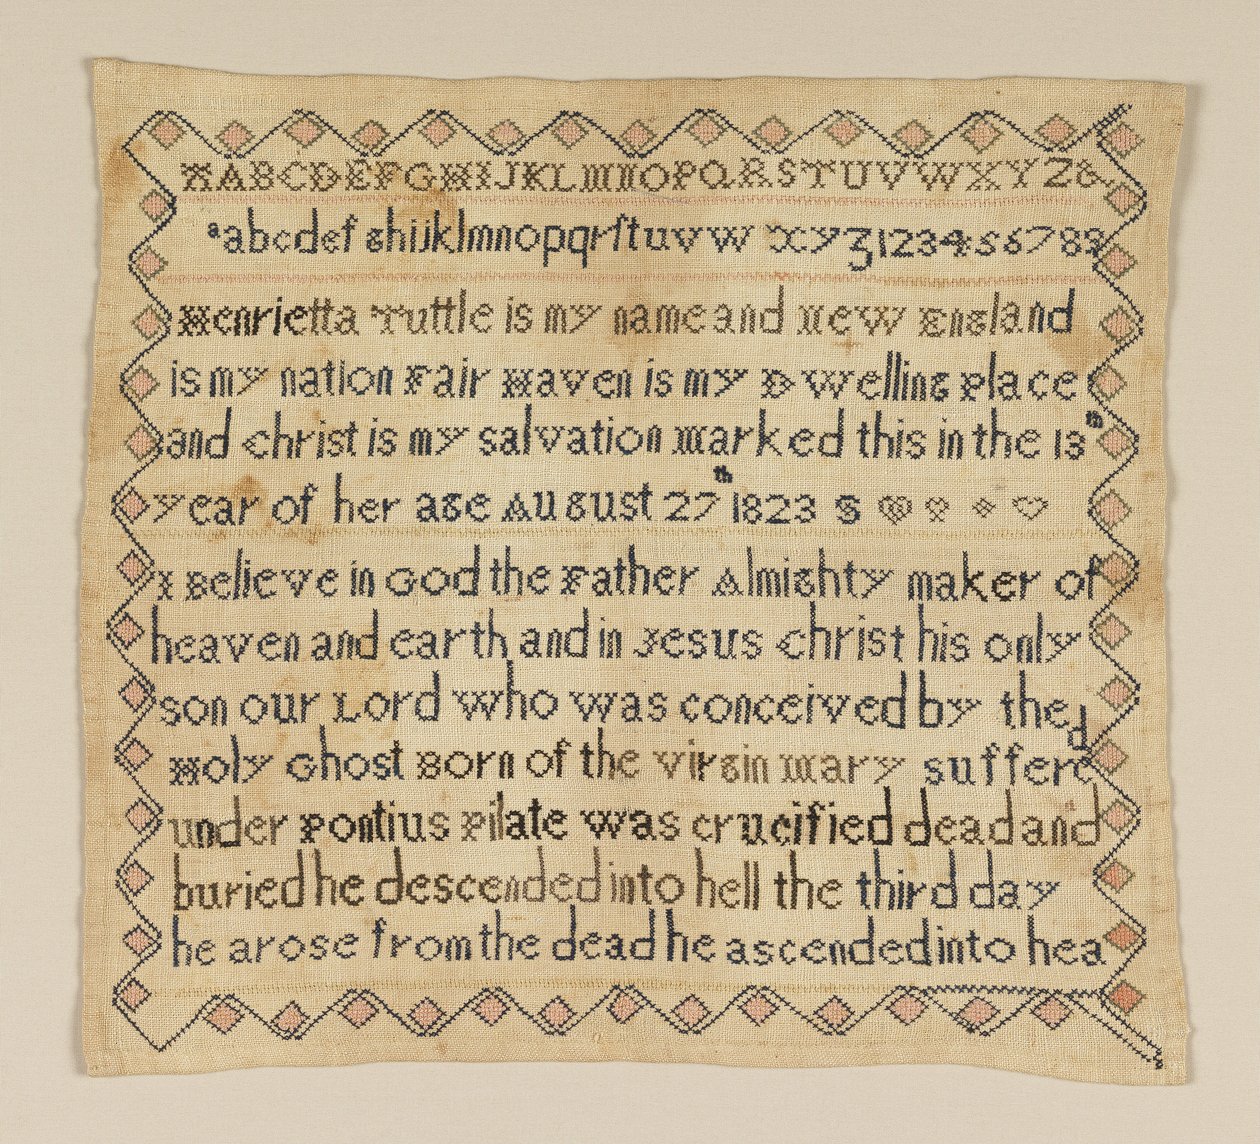 A A B C D E F G H I J K L M N O P Q R S T U V W X Y Z &
a a b c d e f g h i j k l m n o p q r ſ t u v w x y z 1 2 3 4 5 6 7 8 9
Henrietta Tuttle is my name and New England
is my nation Fair Haven is my Dwelling Place
and Christ is my salvation Marked this in the 13th
year of her age August 27th 1823 S
I Believe in God the Father Almighty maker of
heaven and earth and in Jesus Christ his only
son our Lord who was conceived by the
Holy Ghost Born of the Virgin Mary suffered
under Pontius Pilate was crucified dead and
buried he descended into hell the third day
he arose from the dead he ascended into hea